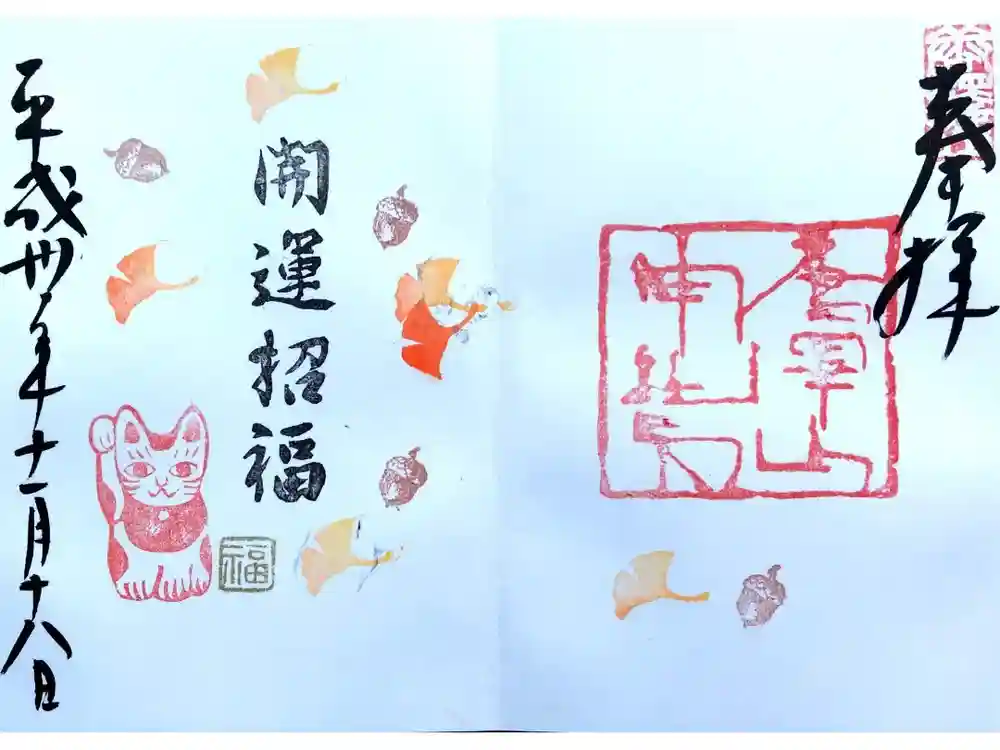 奉拝
開運招福
福
平成卅年十一月十八日